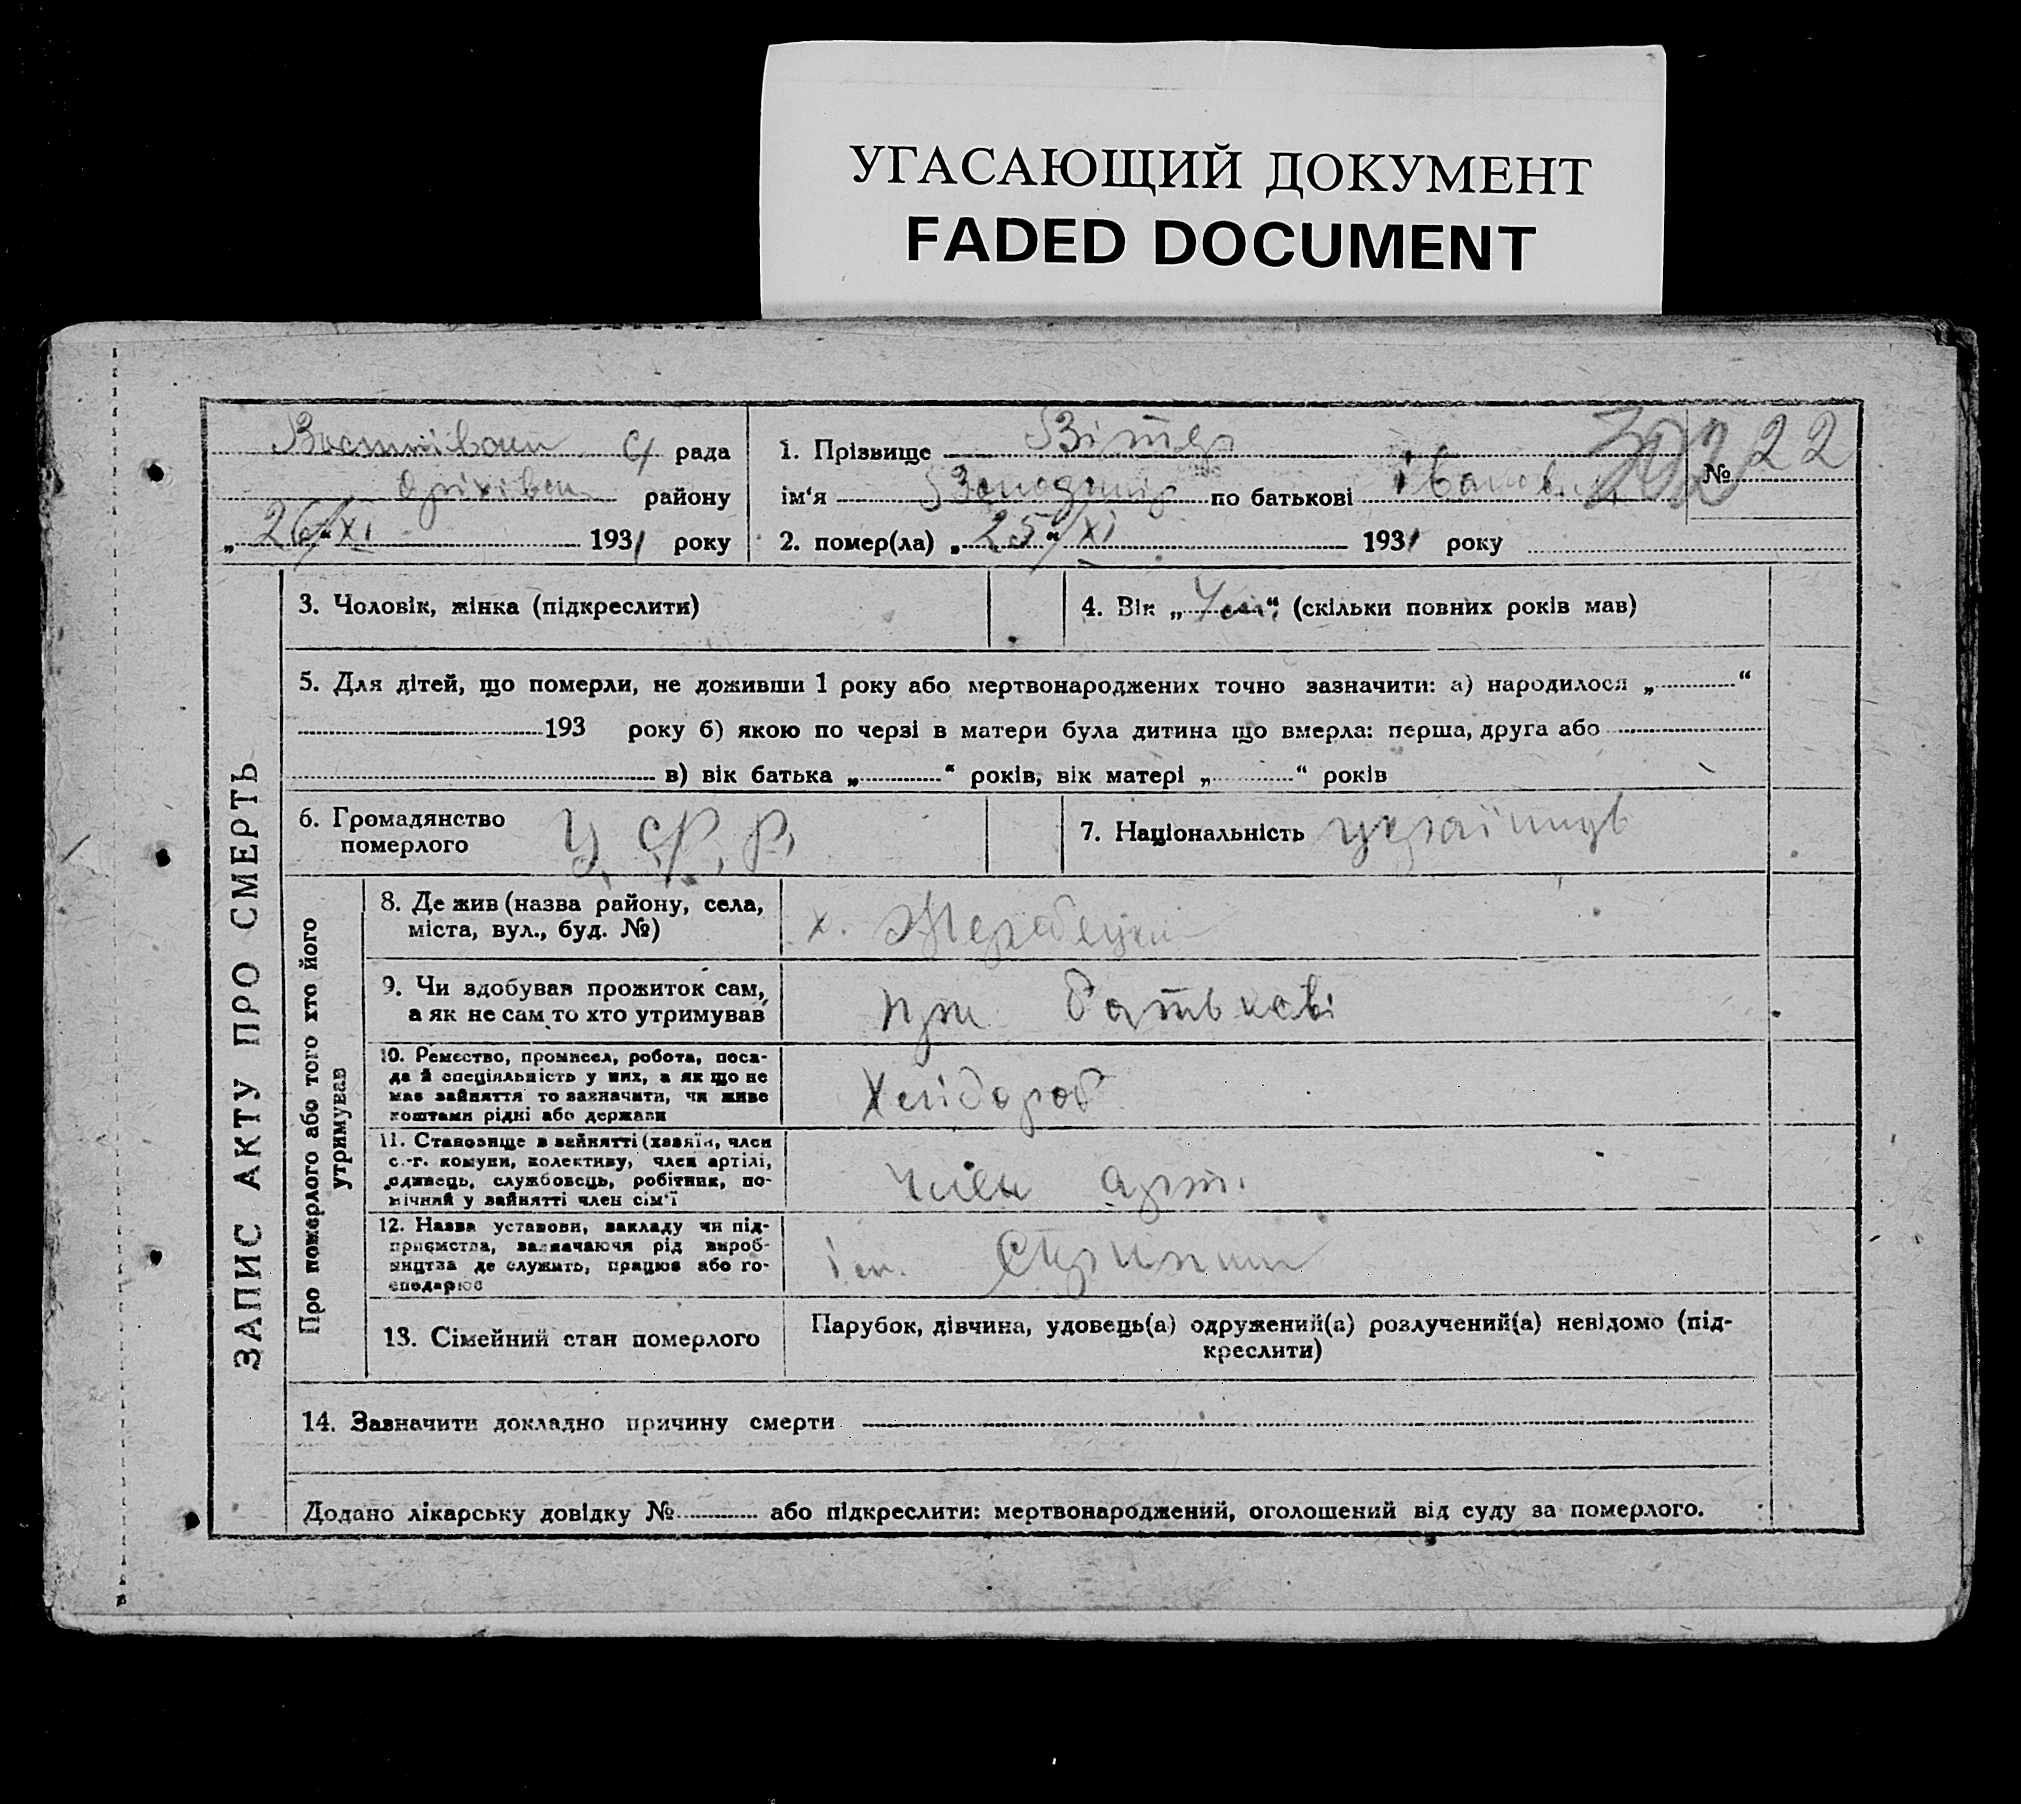 УГАСАЮЩИЙ ДОКУМЕНТ
FADED DOCUMENT
с/ рада
Оріхівськ. району
„26“/XI 1931 року
1. Прізвище Вітер
ім‘я Володимир по батькові Іванович
№ 22
2. помер(ла) „25“/XI 1931 року
ЗАПИС АКТУ ПРО СМЕРТЬ
3. Чоловік, жінка (підкреслити)
4. Вік „ “ (скільки повних років мав)
5. Для дітей, що померли, не доживши 1 року або мертвонароджених точно зазначити: а) народилося „ “
193 року б) якою по черзі в матери була дитина що вмерла: перша, друга або
в) вік батька „ “ років, вік матері „ “ років
6. Громадянство
померлого
У.С.Р.Р.
7. Національність українець
Про померлого або того хто його
утримував
8. Де жив (назва району, села,
міста, вул., буд. №)
х.
9. Чи здобував прожиток сам,
а як не сам то хто утримував
при батькові
10. Ремество, промисел, робота, поса-
да й спеціяльність у них, а як що не
має зайняття то зазначити, чи живе
коштами рідні або держави
Хлібороб
11. Становище в зайнятті (хазяїн, член
с.-г. комуни, колективу, член артілі,
одинець, службовець, робітник, по-
мічний у зайнятті член сім‘ї
член арт.
12. Назва установи, закладу чи під-
приємства, зазначаючи рід вироб-
ництва де служить, працює або го-
сподарює
ім.
13. Сімейний стан померлого
Парубок, дівчина, удовець(а) одружений(а) розлучений(а) невідомо (під-
креслити)
14. Зазначити докладно причину смерти
Додано лікарську довідку № або підкреслити: мертвонароджений, оголошений від суду за померлого.